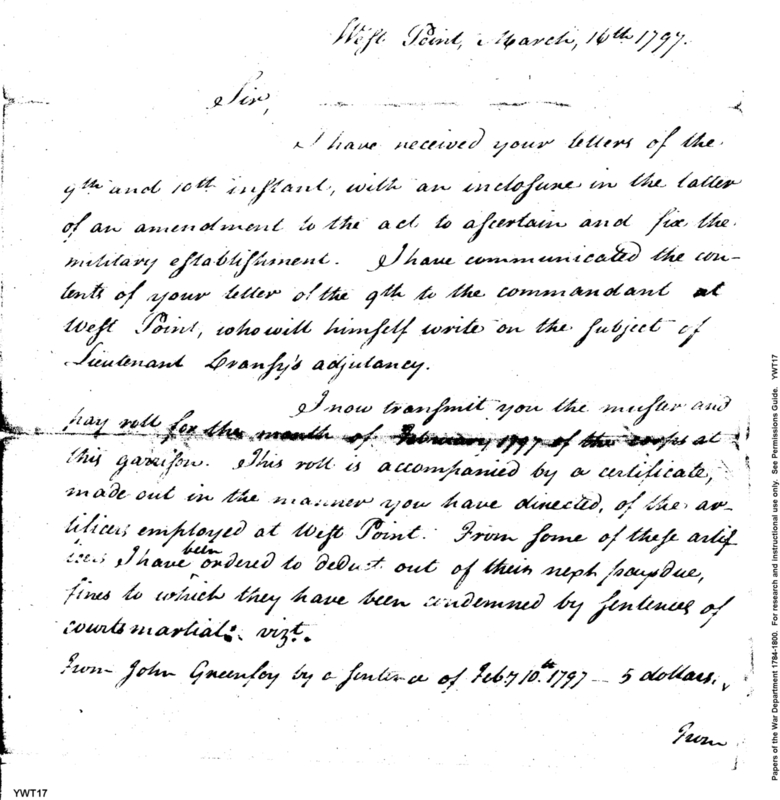 West Point, March, 16th 1797.
Sir,
I have received your letters of the
9th and 10th instant, with an inclosure in the latter
of an amendment to the act to ascertain and fix the
military establishment. I have communicated the con-
tents of your letter of the 9th to the commandant at
West Point, who will himself write on the subject of
Lieutenant adjutancy.
I now transmit you the muster and
pay roll for the month of February 1797 of the corps at
this garrison. This roll is accompanied by a certificate,
made out in the manner you have directed, of the ar-
tificers employed at West Point. From some of these artif
icers I have been ordered to deduct out of their next pays due,
fines to which they have been condemned by sentences of
courts martial: vizt.
From John Greensley by a sentence of Feby 10th. 1797 — 5 dollars.
From
YWT17
Papers of the War Department 1784-1800. For research and instructional use only. See Permissions Guide. YWT17